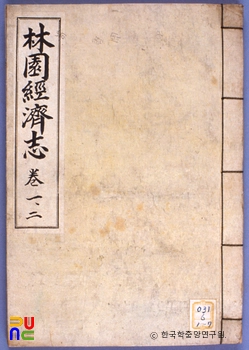 林園經濟志
卷一、二
031
ⓒ 한국학중앙연구원